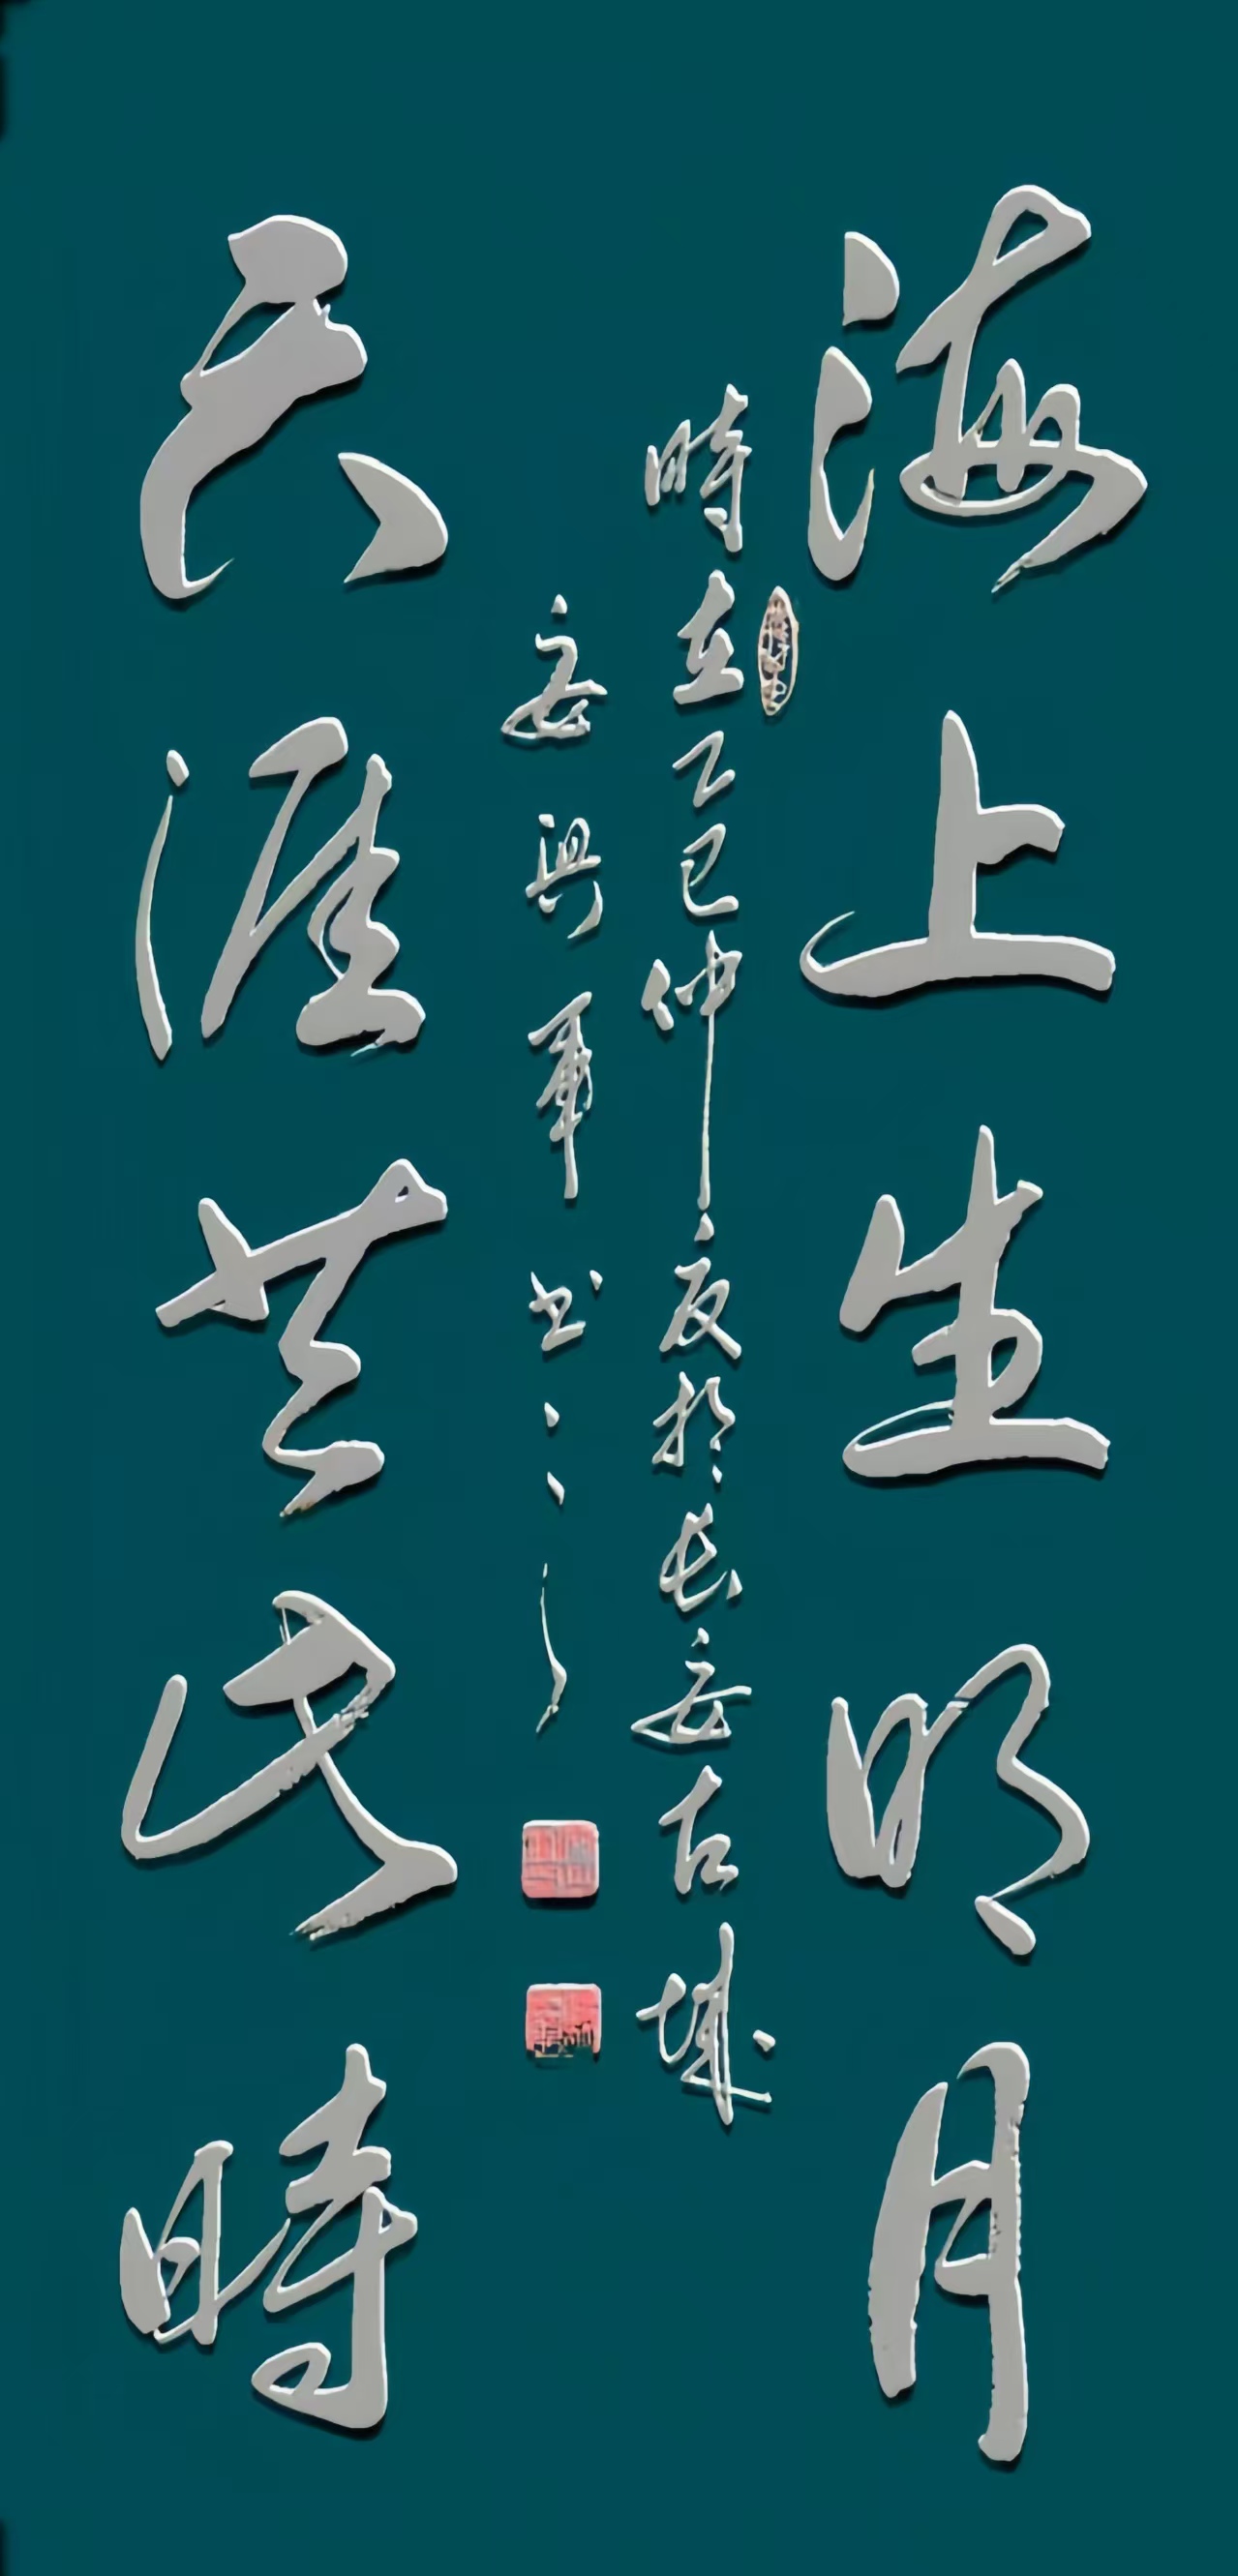 海上生明月
天涯共此時
時在乙巳仲夏於長安古城
安興軍书